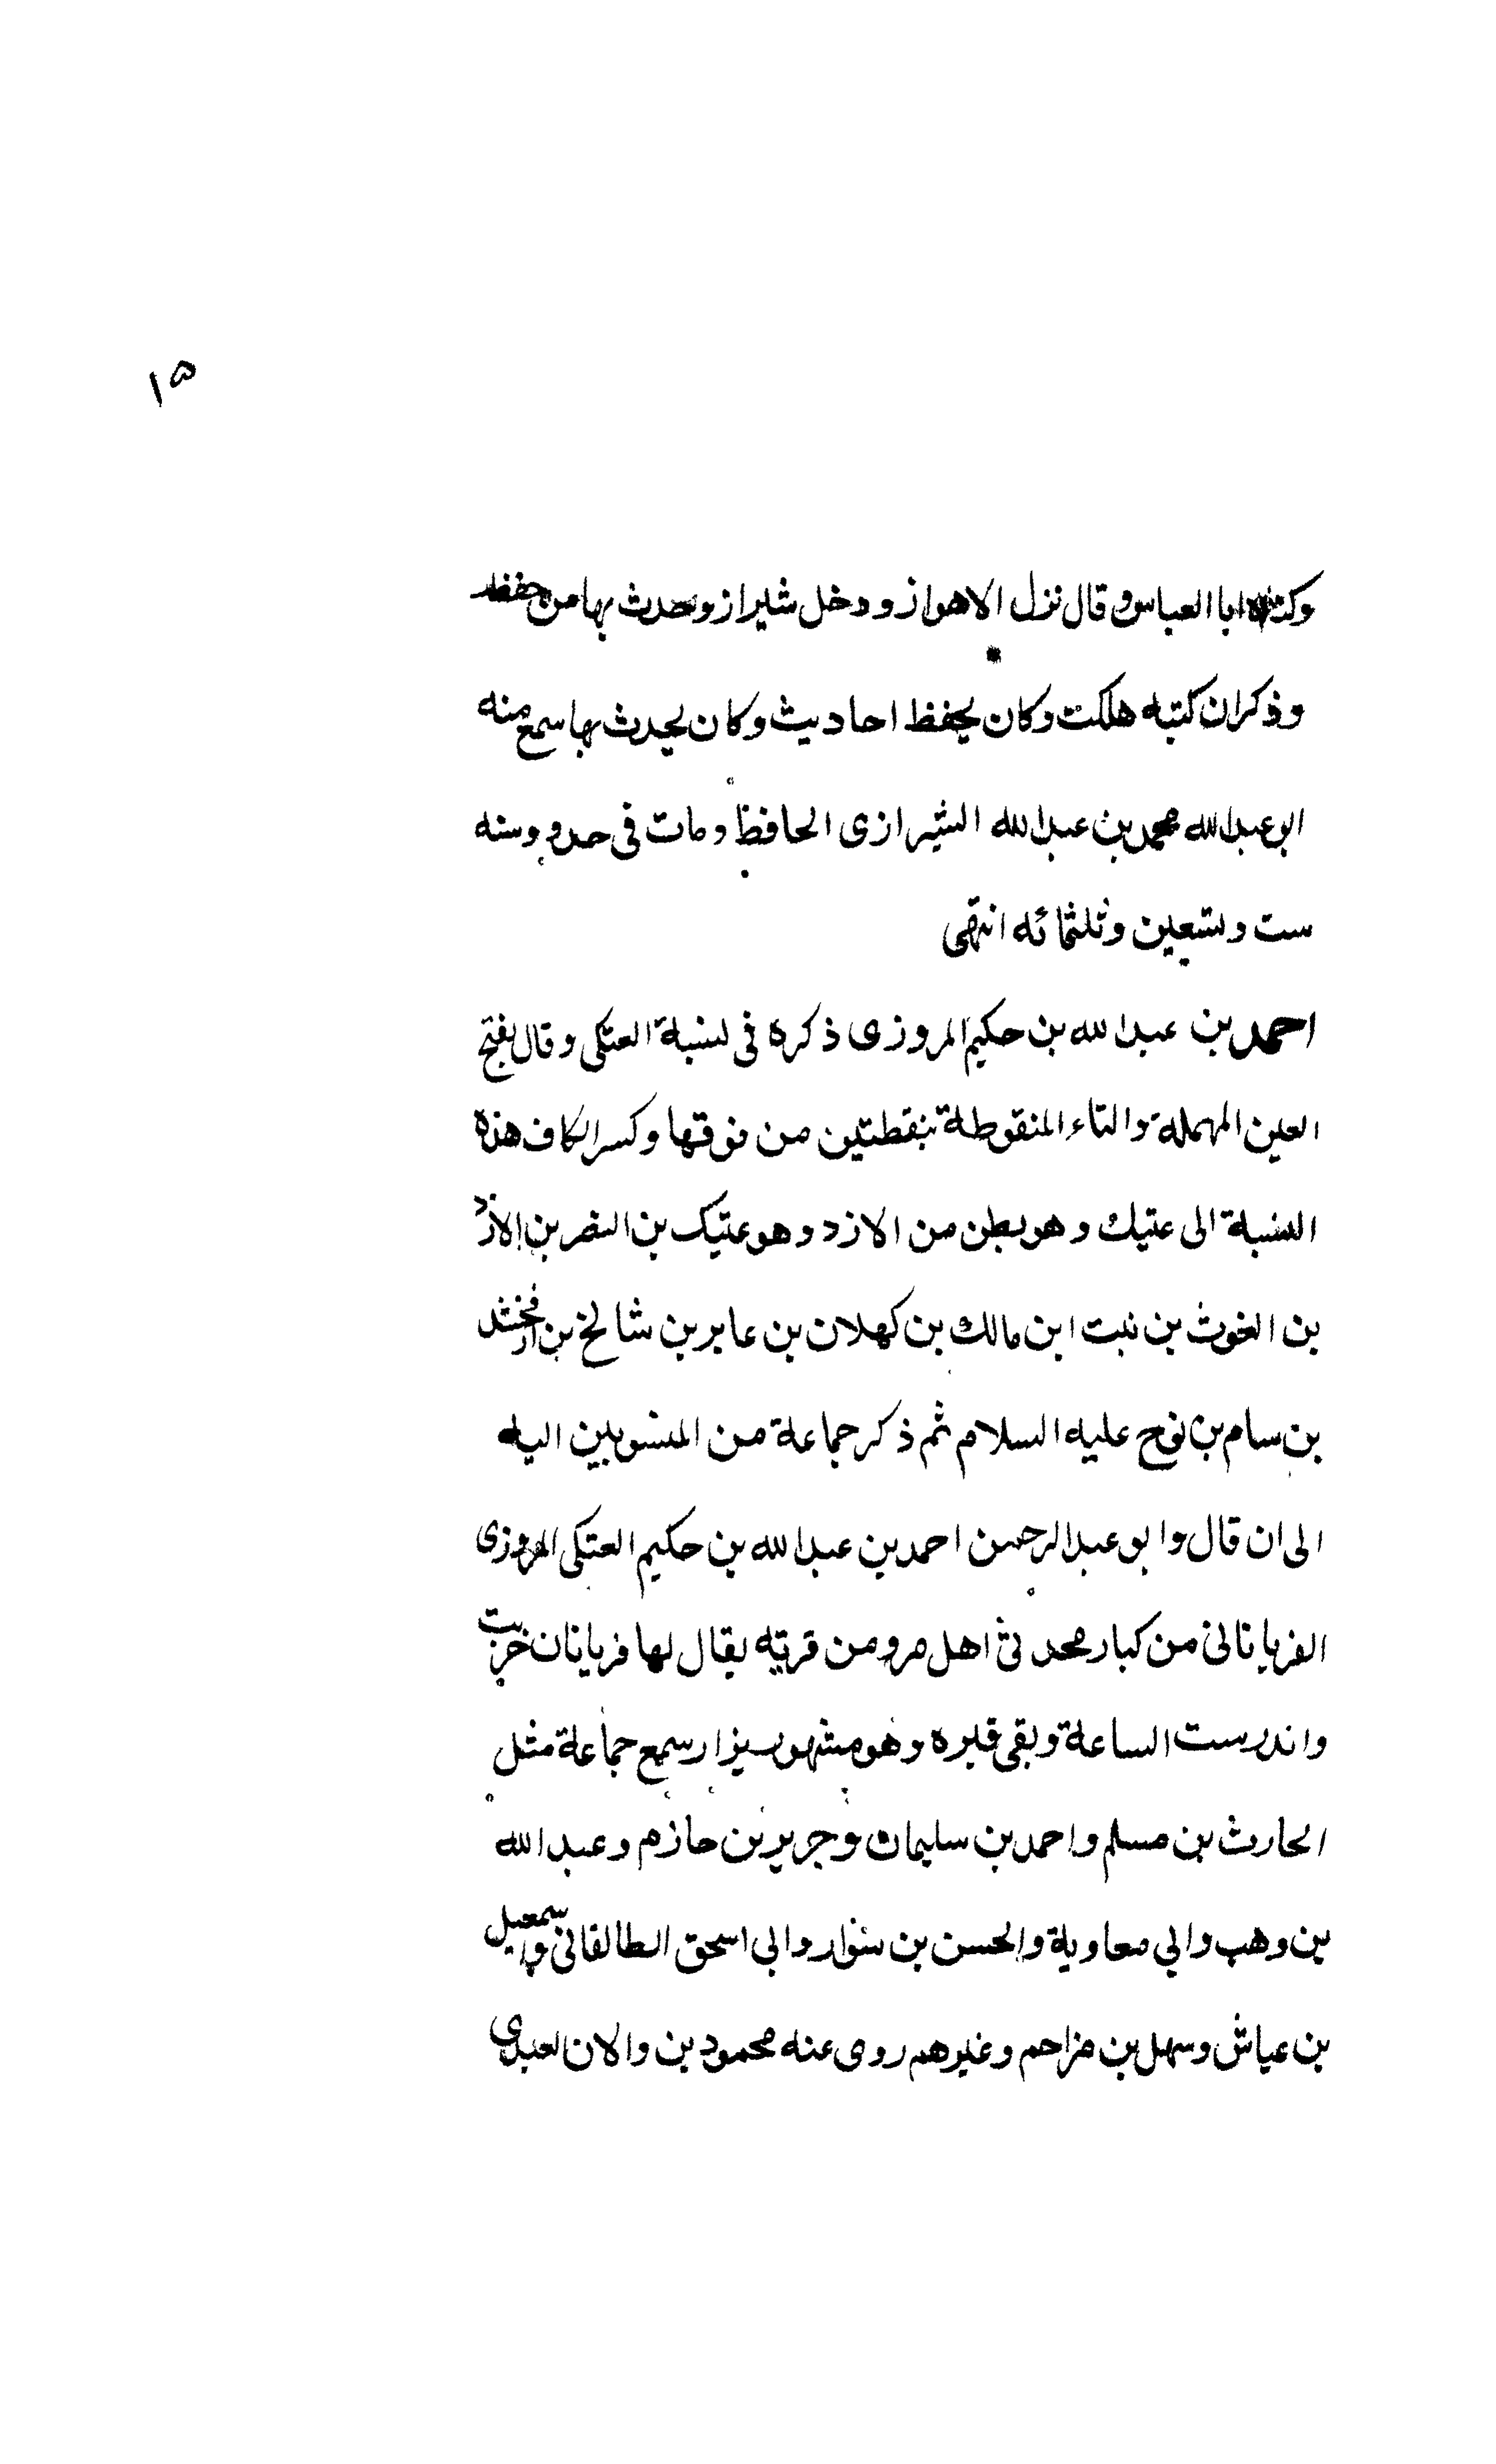 ١٥
وكناه ابا العباس وقال نزل الاهواز ودخل شيراز وحدث بها من حفظه
وذكر ان كتبه هلكت وكان يحفظ احاديث وكان يحدث بها سمع منه
ابو عبد الله محمد بن عبد الله الشيرازى الحافظ ومات فى حدود سنه
ست وتسعين وثلثمائه انتهى
احمد بن عبد الله بن حكيم المروزى ذكره فى نسبة العتكى وقال بفتح
العين المهملة والتاء المنقوطة بنقطتين من فوقها وكسر الكاف هذه
النسبة الى عتيك وهو بطن من الازد وهو عتيك بن النضر بن الازد
بن الغوث بن نبت ابن مالك بن كهلان بن عابر بن شالخ بن ارفخشد
بن سام بن نوح عليه السلام ثم ذكر جماعة من المنسوبين اليه
الى ان قال وابو عبد الرحمن احمد بن عبد الله بن حكيم العتكى المروزى
الفريانانى من كبار محدثى اهل مرو من قريه يقال لها فريانان خربت
واندرست الساعة وبقى قبره وهو مشهور يزار سمع جماعة مثل
الحارث بن مسلم واحمد بن سليمان وجرير بن حازم وعبد الله
بن وهب وابي معاوية والحسن بن سوار وابي اسحق الطالقانى واسمعيل
بن عياش وسهل بن مزاحم وغيرهم روى عنه محمود بن والان العبدى